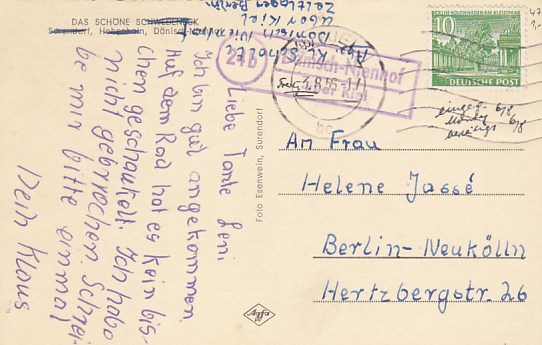 DAS SCHÖNE SCHWEDENECK
Surendorf, Hohenhain, Dänisch-Nienhof
K. Scholtz
Dänisch Nienhof
über Kiel
Zeltlager Berlin
Liebe Tante Leni
Ich bin gut angekommen.
Auf dem Rad hat es kein bis-
chen geschaukelt. Ich habe
nicht gebrochen. Schrei-
be mir bitte einmal
Dein Klaus
Foto Esenwein, Surendorf
Agfa
24b
Dänisch-Nienhof
über Kiel
10
DEUTSCHE POST
BERLIN
eingeg. 6/8
Montag
6/8
An Frau
Helene Jassé
Berlin-Neukölln
Hertzbergstr. 26